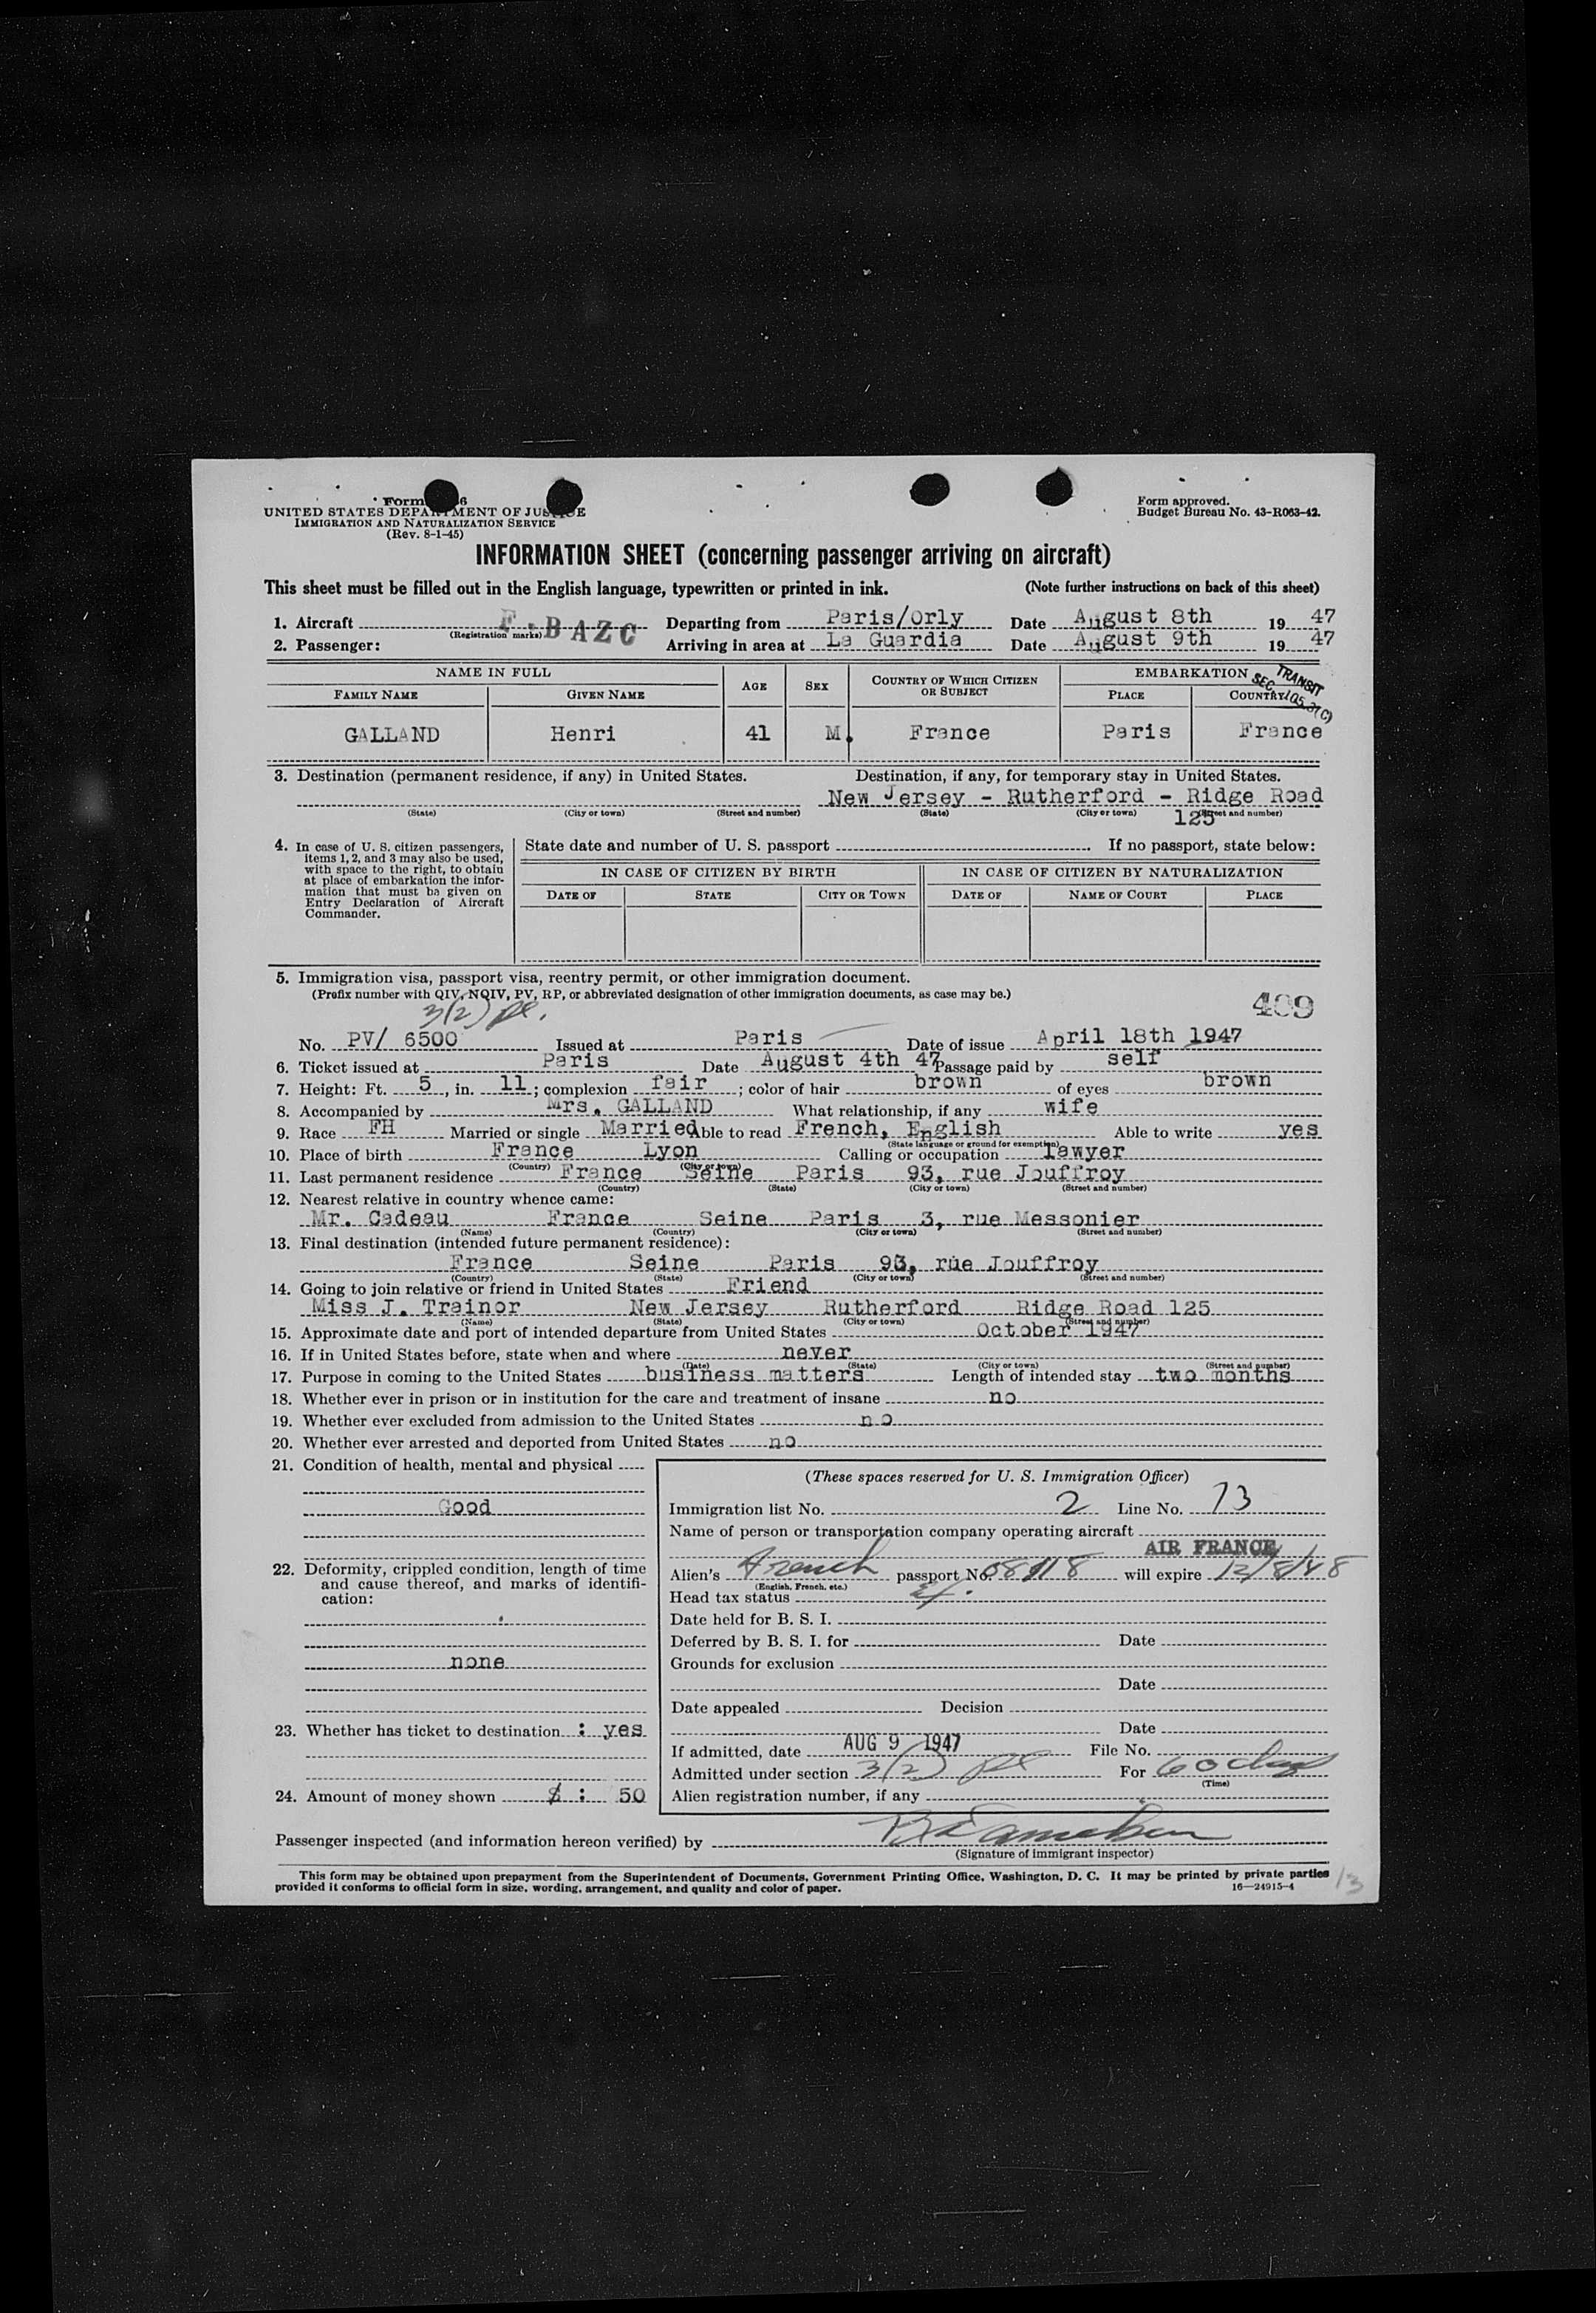 Form 6
UNITED STATES DEPARTMENT OF JUSTICE
IMMIGRATION AND NATURALIZATION SERVICE
(Rev. 8-1-45)
Form approved.
Budget Bureau No. 43-R063-42.
INFORMATION SHEET (concerning passenger arriving on aircraft)
This sheet must be filled out in the English language, typewritten or printed in ink. (Note further instructions on back of this sheet)
1. Aircraft F.BAZC Departing from Paris/Orly Date August 8th 19 47
(Registration marks)
2. Passenger: Arriving in area at La Guardia Date August 9th 19 47
NAME IN FULL AGE SEX COUNTRY OF WHICH CITIZEN OR SUBJECT EMBARKATION
TRANSIT
SEC. 105.31(C)
FAMILY NAME GIVEN NAME PLACE COUNTRY
GALLAND Henri 41 M. France Paris France
3. Destination (permanent residence, if any) in United States. Destination, if any, for temporary stay in United States.
New Jersey - Rutherford - Ridge Road
(State) (City or town) (Street and number) (State) (City or town) (Street and number)
125
4. In case of U. S. citizen passengers, items 1, 2, and 3 may also be used, with space to the right, to obtain at place of embarkation the information that must be given on Entry Declaration of Aircraft Commander.
State date and number of U. S. passport If no passport, state below:
IN CASE OF CITIZEN BY BIRTH IN CASE OF CITIZEN BY NATURALIZATION
DATE OF STATE CITY OR TOWN DATE OF NAME OF COURT PLACE
5. Immigration visa, passport visa, reentry permit, or other immigration document.
(Prefix number with QIV, NQIV, PV, RP, or abbreviated designation of other immigration documents, as case may be.)
409
3(2)
No. PV/ 6500 Issued at Paris Date of issue April 18th 1947
6. Ticket issued at Paris Date August 4th 47 Passage paid by self
7. Height: Ft. 5, in. 11; complexion fair; color of hair brown of eyes brown
8. Accompanied by Mrs. GALLAND What relationship, if any wife
9. Race FH Married or single Married Able to read French, English Able to write yes
(State language or ground for exemption)
10. Place of birth France Lyon Calling or occupation lawyer
(Country) (City or town)
11. Last permanent residence France Seine Paris 93, rue Jouffroy
(Country) (State) (City or town) (Street and number)
12. Nearest relative in country whence came:
Mr. Cadeau France Seine Paris 3, rue Messonier
(Name) (Country) (City or town) (Street and number)
13. Final destination (intended future permanent residence):
France Seine Paris 93, rue Jouffroy
(Country) (State) (City or town) (Street and number)
14. Going to join relative or friend in United States Friend
Miss J. Trainor New Jersey Rutherford Ridge Road 125
(Name) (State) (City or town) (Street and number)
15. Approximate date and port of intended departure from United States October 1947
16. If in United States before, state when and where never
(Date) (State) (City or town) (Street and number)
17. Purpose in coming to the United States business matters Length of intended stay two months
18. Whether ever in prison or in institution for the care and treatment of insane no
19. Whether ever excluded from admission to the United States no
20. Whether ever arrested and deported from United States no
21. Condition of health, mental and physical
Good
22. Deformity, crippled condition, length of time and cause thereof, and marks of identification:
none
23. Whether has ticket to destination : yes
24. Amount of money shown $ : 50
(These spaces reserved for U. S. Immigration Officer)
Immigration list No. 2 Line No. 13
Name of person or transportation company operating aircraft
AIR FRANCE
Alien's French passport No. 08118 will expire 12/8/48
(English, French, etc.)
Head tax status
Date held for B. S. I.
Deferred by B. S. I. for Date
Grounds for exclusion
Date
Date appealed Decision
Date
If admitted, date AUG 9 1947 File No.
Admitted under section 3(2) For 60 days
(Time)
Alien registration number, if any
Passenger inspected (and information hereon verified) by
(Signature of immigrant inspector)
This form may be obtained upon prepayment from the Superintendent of Documents, Government Printing Office, Washington, D. C. It may be printed by private parties
provided it conforms to official form in size, wording, arrangement, and quality and color of paper. 16—24915-4
13